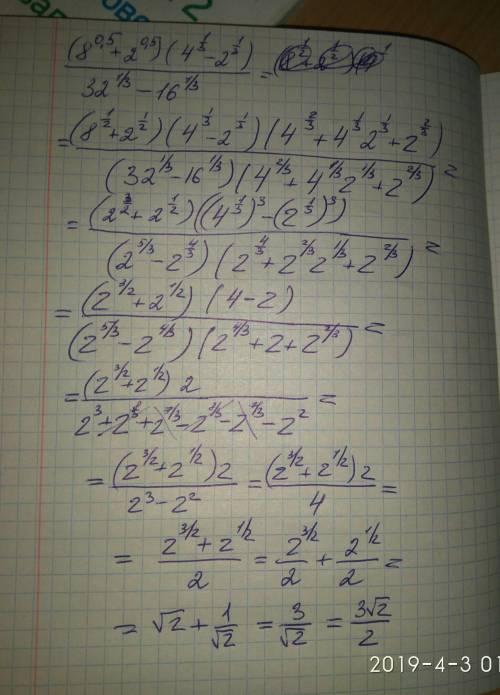 (8^0,5 + 2^0,5)(4^1/3 - 2^1/3) / (32^1/3 - 16^1/3) =
= (8^1/2 + 2^1/2)(4^1/3 - 2^1/3)(4^2/3 + 4^1/3 2^1/3 + 2^2/3) / (32^1/3 - 16^1/3)(4^2/3 + 4^1/3 2^1/3 + 2^2/3) =
= (2^3/2 + 2^1/2)((4^1/3)^3 - (2^1/3)^3) / (2^5/3 - 2^4/3)(2^4/3 + 2^2/3 2^1/3 + 2^2/3) =
= (2^3/2 + 2^1/2)(4 - 2) / (2^5/3 - 2^4/3)(2^4/3 + 2 + 2^2/3) =
= (2^3/2 + 2^1/2) 2 / (2^3 + 2^8/3 + 2^7/3 - 2^8/3 - 2^7/3 - 2^2) =
= (2^3/2 + 2^1/2) 2 / (2^3 - 2^2) = (2^3/2 + 2^1/2) 2 / 4 =
= (2^3/2 + 2^1/2) / 2 = 2^3/2 / 2 + 2^1/2 / 2 =
= √2 + 1/√2 = 3/√2 = 3√2/2
2019-4-3 01